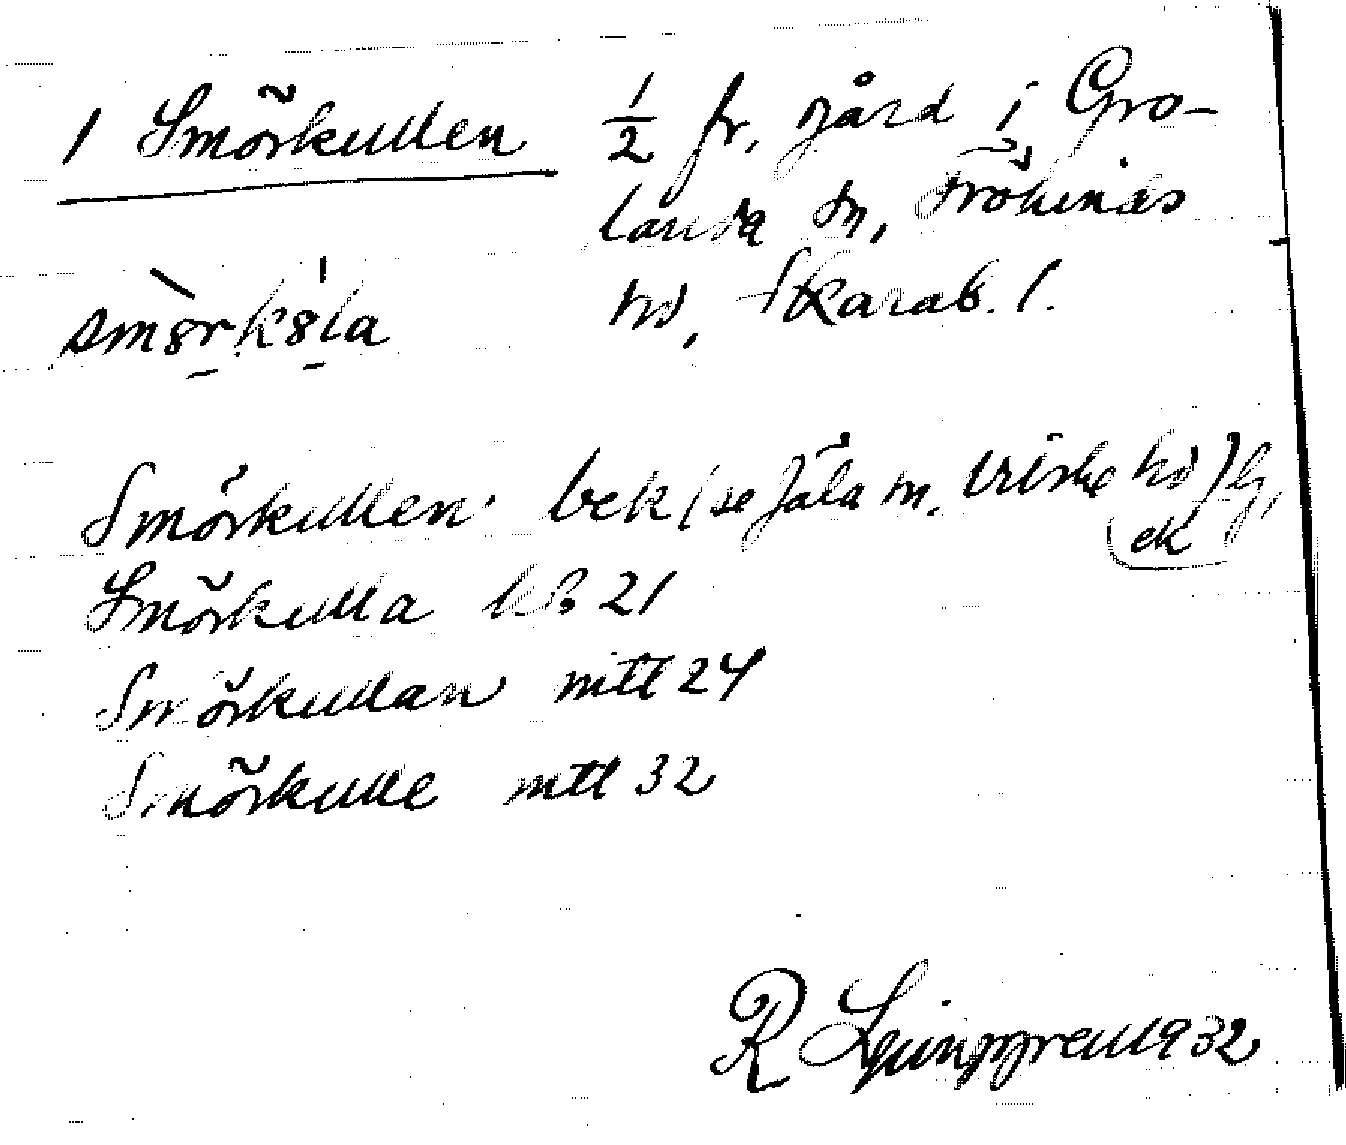 1 Smörkullen ½ fr. gård i Gro-
landa sn, Frökinds
hd, Skarab. l.
smörk8la
Smörkullen bek (se Jäla sn. Vilske hd) Gj,
ek
Smörkulla kB 21
Smörkullan mtl 24
Smörkulle mtl 32
R Ljunggren 1932